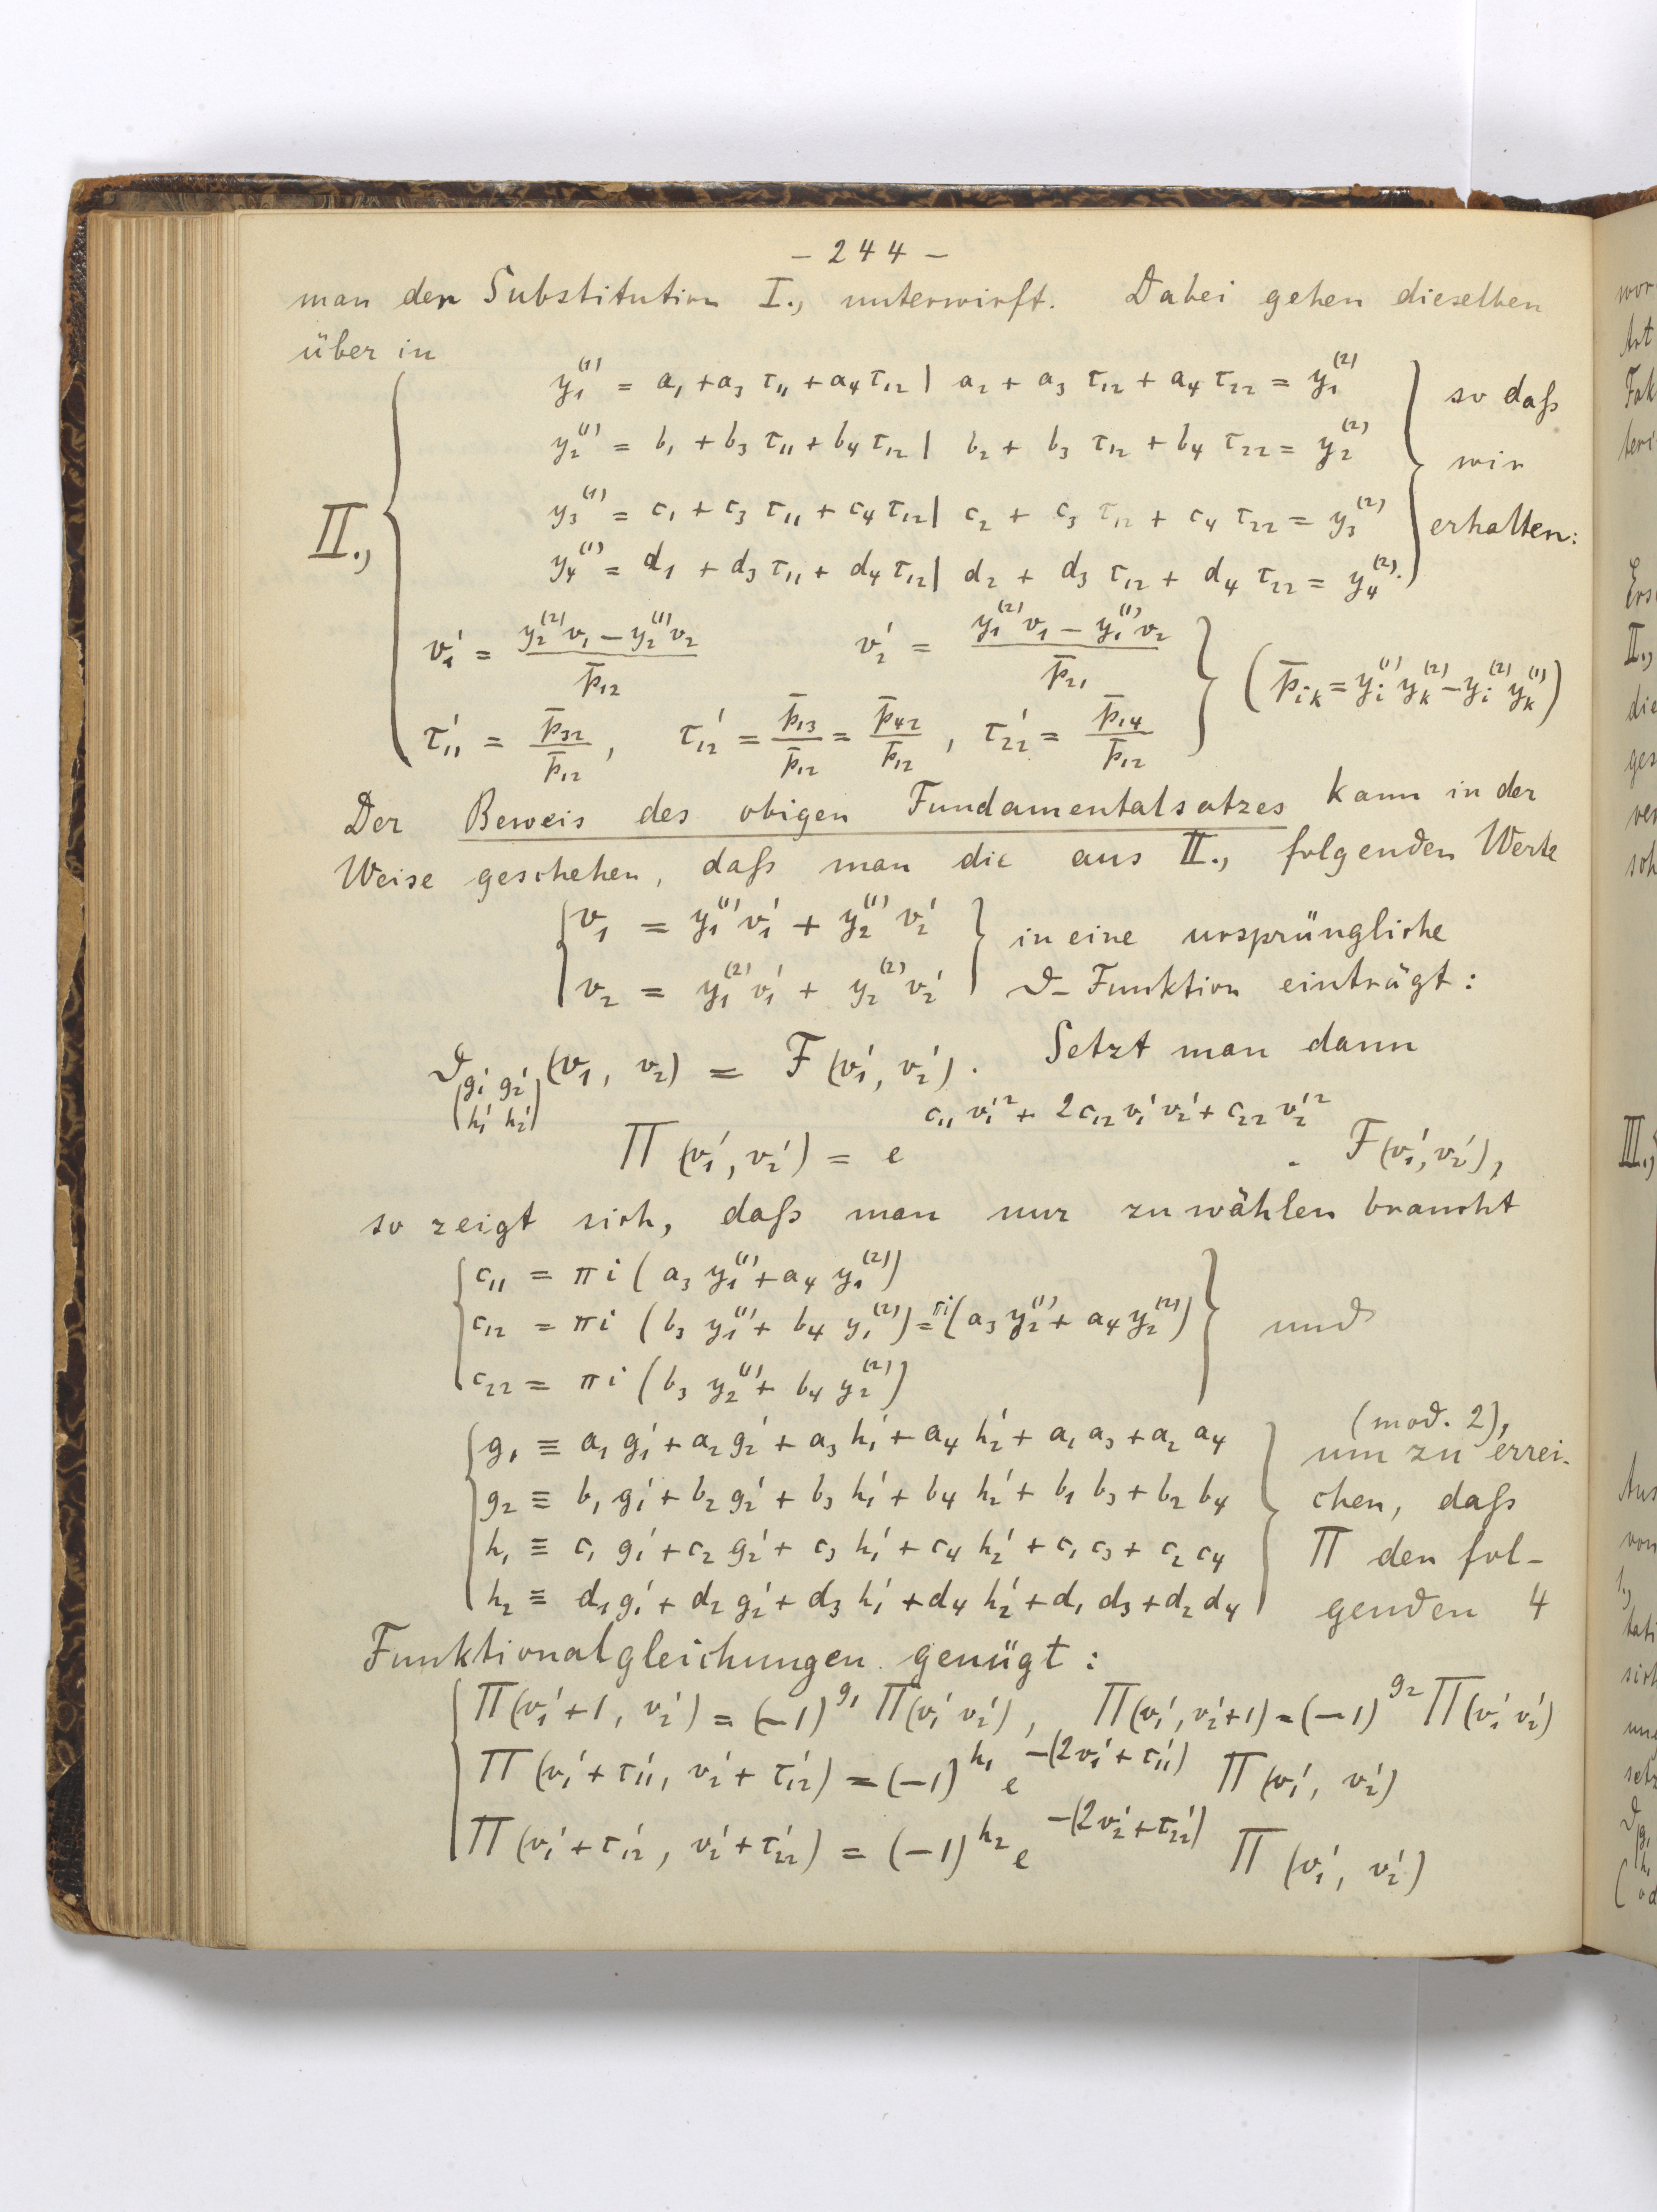 – 244 –
man der Substitution I., unterwirft. Dabei gehen dieselben
über in
II.,
y₁⁽¹⁾ = a₁ + a₃ τ₁₁ + a₄ τ₁₂ | a₂ + a₃ τ₁₂ + a₄ τ₂₂ = y₁⁽²⁾
y₂⁽¹⁾ = b₁ + b₃ τ₁₁ + b₄ τ₁₂ | b₂ + b₃ τ₁₂ + b₄ τ₂₂ = y₂⁽²⁾
y₃⁽¹⁾ = c₁ + c₃ τ₁₁ + c₄ τ₁₂ | c₂ + c₃ τ₁₂ + c₄ τ₂₂ = y₃⁽²⁾
y₄⁽¹⁾ = d₁ + d₃ τ₁₁ + d₄ τ₁₂ | d₂ + d₃ τ₁₂ + d₄ τ₂₂ = y₄⁽²⁾.
so daß
wir
erhalten:
v₁' = (y₂⁽²⁾v₁ – y₂⁽¹⁾v₂) / p̄₁₂ v₂' = (y₁⁽²⁾v₁ – y₁⁽¹⁾v₂) / p̄₂₁ (p̄ᵢₖ = yᵢ⁽¹⁾ yₖ⁽²⁾ – yᵢ⁽²⁾ yₖ⁽¹⁾)
τ₁₁' = p̄₃₂ / p̄₁₂ , τ₁₂' = p̄₁₃ / p̄₁₂ = p̄₄₂ / p̄₁₂ , τ₂₂' = p̄₁₄ / p̄₁₂
Der Beweis des obigen Fundamentalsatzes kann in der
Weise geschehen, daß man die aus II., folgenden Werte
v₁ = y₁⁽¹⁾v₁' + y₂⁽¹⁾v₂' in eine ursprüngliche
v₂ = y₁⁽²⁾v₁' + y₂⁽²⁾v₂' ϑ-Funktion einträgt:
ϑ|g₁' g₂'| (v₁, v₂) = F(v₁', v₂'). Setzt man dann
|h₁' h₂'|
Π(v₁', v₂') = e^(c₁₁ v₁'² + 2c₁₂ v₁'v₂' + c₂₂ v₂'²) . F(v₁', v₂'),
so zeigt sich, daß man nur zu wählen braucht
c₁₁ = πi (a₃ y₁⁽¹⁾ + a₄ y₁⁽²⁾)
c₁₂ = πi (b₃ y₁⁽¹⁾ + b₄ y₁⁽²⁾) = πi(a₃ y₂⁽¹⁾ + a₄ y₂⁽²⁾) und
c₂₂ = πi (b₃ y₂⁽¹⁾ + b₄ y₂⁽²⁾)
(mod. 2),
g₁ ≡ a₁ g₁' + a₂ g₂' + a₃ h₁' + a₄ h₂' + a₁ a₃ + a₂ a₄ um zu errei-
g₂ ≡ b₁ g₁' + b₂ g₂' + b₃ h₁' + b₄ h₂' + b₁ b₃ + b₂ b₄ chen, daß
h₁ ≡ c₁ g₁' + c₂ g₂' + c₃ h₁' + c₄ h₂' + c₁ c₃ + c₂ c₄ Π den fol-
h₂ ≡ d₁ g₁' + d₂ g₂' + d₃ h₁' + d₄ h₂' + d₁ d₃ + d₂ d₄ genden 4
Funktionalgleichungen genügt:
Π(v₁'+1, v₂') = (–1)^g₁ Π(v₁' v₂'), Π(v₁', v₂'+1) = (–1)^g₂ Π(v₁' v₂')
Π(v₁'+τ₁₁', v₂'+τ₁₂') = (–1)^h₁ e^–(2v₁'+τ₁₁') Π(v₁', v₂')
Π(v₁'+τ₁₂', v₂'+τ₂₂') = (–1)^h₂ e^–(2v₂'+τ₂₂') Π(v₁', v₂')
II.,
die
III.,